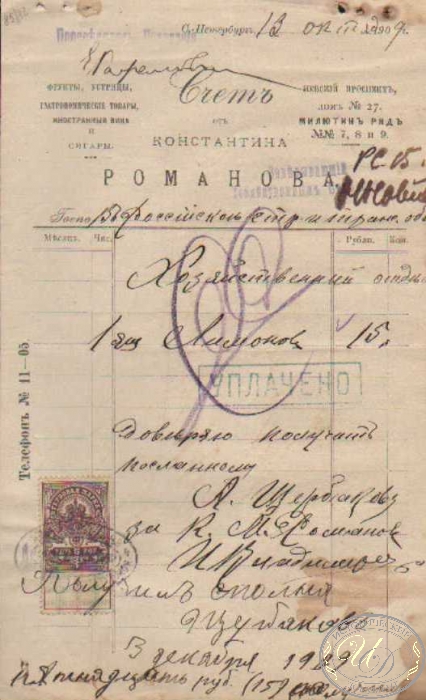 С.-Петербургъ, 13 окт 1909
Счетъ
ФРУКТЫ, УСТРИЦЫ,
ГАСТРОНОМИЧЕСКІЕ ТОВАРЫ,
ИНОСТРАННЫЯ ВИНА
И
СИГАРЫ.
НЕВСКІЙ ПРОСПЕКТЪ,
домъ № 27.
МИЛЮТИНЪ РЯДЪ
№№ 7, 8 и 9.
отъ
КОНСТАНТИНА
РОМАНОВА.
РС 15
Въ Россійское стр и тран. об
Мѣсяцъ. Чис. Рубли. Коп.
Хозяйственный отдѣлъ
1 ящ Лимоновъ 15
УПЛАЧЕНО
Довѣряю получить
посланному
А. Щербакову
за К. М. Романов
И Владиміро
Получилъ сполна
Щербаковъ
3 декабря 1909
Пятнадцать руб. (15)
Телефонъ № 11—05.